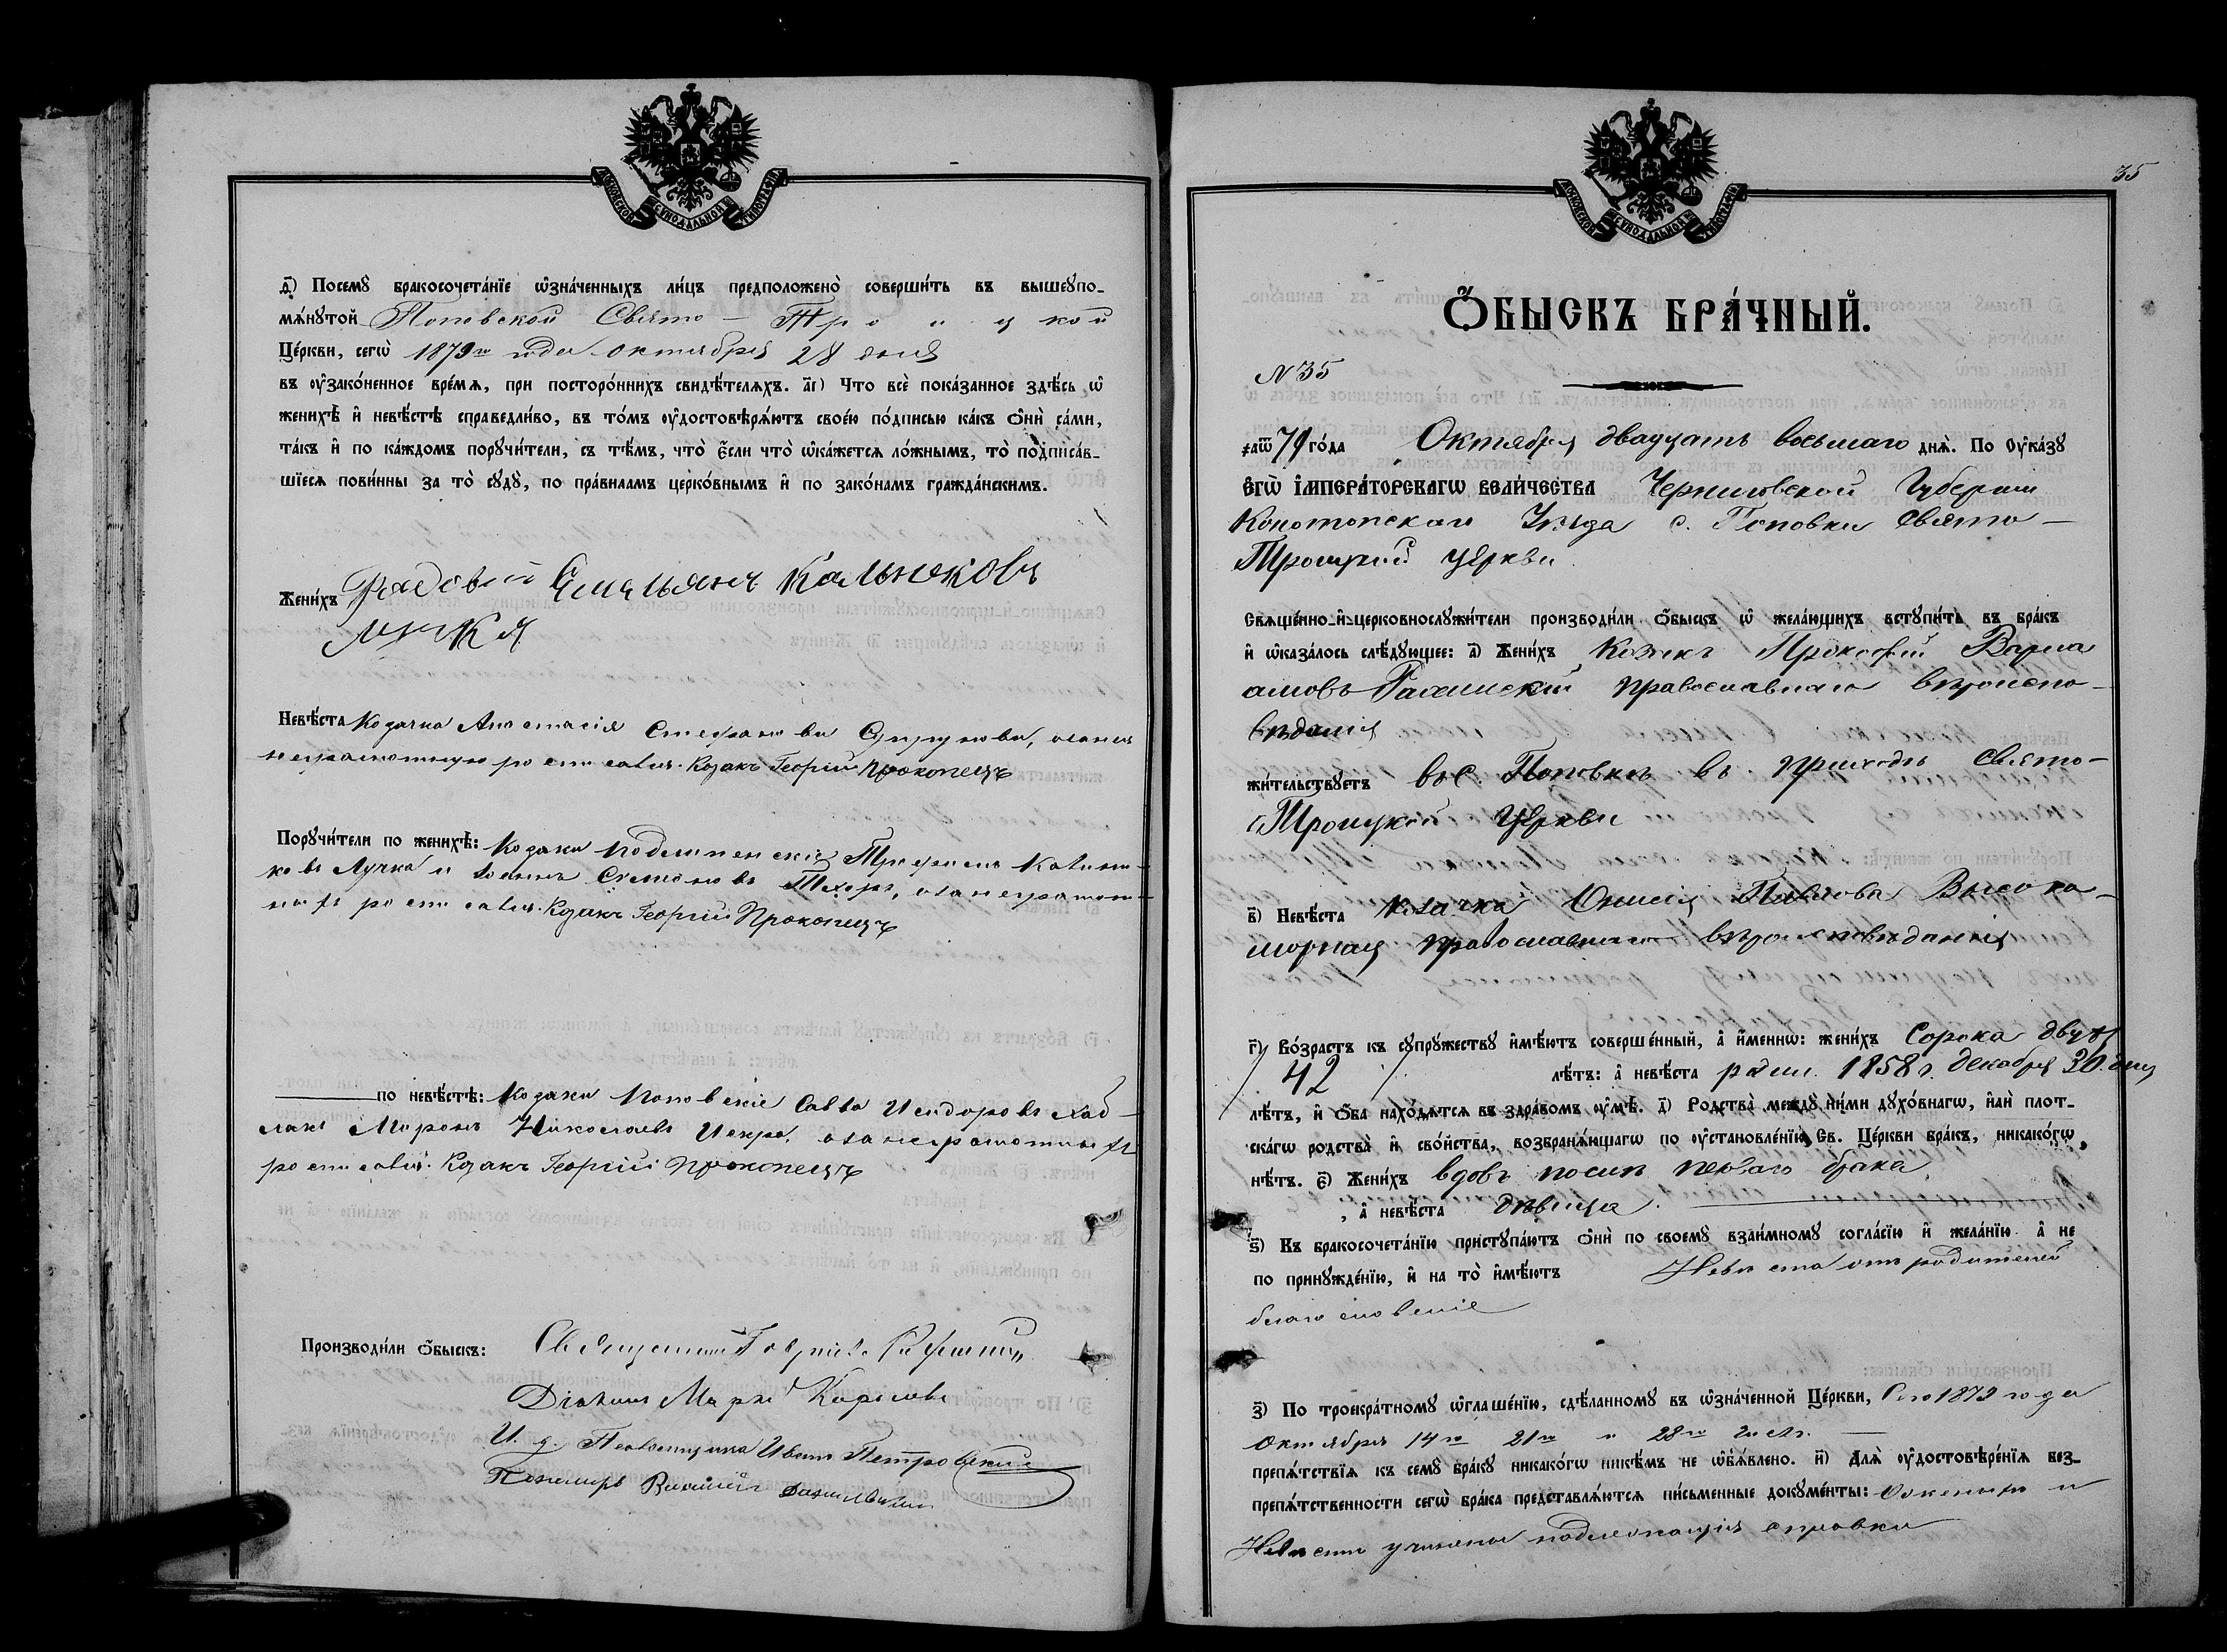 МОСКОВСКОЙ СѴНОДАЛЬНОЙ ТИПОГРАФІИ
д҃) Посемꙋ бракосочета́нїе ѡ҆зна́ченныхъ ли́цъ предположено̀ соверши́ть въ вышеꙋпо-
мѧ́нꙋтой Поповской Свято-Троицкой
Це́ркви, сегѡ̀ 1879го года октября 28 дня
въ ᲂу҆зако́ненное вре́мѧ, при посторо́ннихъ свидѣ́телѧхъ. а҃і) Что всѐ пока́занное здѣ́сь ѡ҆
женихѣ̀ и҆ невѣ́стѣ справедли́во, въ то́мъ ᲂу҆достовѣрѧ́ютъ свое́ю по́дписью ка́къ ѻ҆нѝ са́ми,
та́къ и҆ по ка́ждомъ порꙋчи́тели, съ тѣ́мъ, что̀ є҆́сли что̀ ѡ҆ка́жетсѧ ло́жнымъ, то̀ подписа́в-
шїесѧ пови́нны за то̀ сꙋдꙋ̀, по пра́виламъ церко́внымъ и҆ по зако́намъ гражда́нскимъ.
Жени́хъ Рядовый Емельянъ Кальнековъ
Лучка
Невѣ́ста Козачка Анастасія Стефанова Супрунова, а за нея
неграмотную росписался Козакъ Георгій Прокопецъ
Порꙋчи́тели по женихѣ̀: Козаки Подлипенскіе Трифонъ
ковъ Лучка и Іоаннъ Семеновъ Техоръ, а за неграмот-
ныхъ росписался Козакъ Георгій Прокопецъ
по невѣ́стѣ: Козаки Поповскіе Савва Исидоровъ
Миронъ Николаевъ Искра, а за неграмотныхъ
росписался Козакъ Георгій Прокопецъ
Производи́ли ѻ҆́быскъ: Священникъ Гавріилъ
Діаконъ Маркъ Карповъ
И. д. Псаломщика Иванъ Петровскій
Пономарь Василій Данилевскій
35
МОСКОВСКОЙ СѴНОДАЛЬНОЙ ТИПОГРАФІИ
Ѻ҆́БЫСКЪ БРА́ЧНЫЙ.
N 35
҂аѿ 79 го́да Октября двадцать восьмаго днѧ̀. По Оу҆ка́зꙋ
Є҆ГѠ̀ І҆МПЕРА́ТОРСКАГѠ ВЕЛИ́ЧЕСТВА Черниговской Губерніи
Конотопскаго Уѣзда с. Поповки Свято-
Троицкой церкви
Свѧще́нно-и҆-церковнослꙋжи́тели производи́ли ѻ҆́быскъ ѡ҆ жела́ющихъ встꙋпи́ть въ бра́къ
и҆ ѡ҆каза́лось слѣ́дꙋющее: а҃) Жени́хъ Козакъ Прокофій Варла
амовъ православнаго вѣроиспо-
вѣданія
жи́тельствꙋетъ въ с. Поповкѣ въ приходѣ Свято-
Троицкой Церкви
в҃) Невѣ́ста Козачка Павлова Высоко-
морная православнаго вѣроисповѣданія
г҃) Во́зрастъ къ сꙋпрꙋ́жествꙋ и҆мѣ́ютъ соверше́нный, а҆ и҆́меннѡ: жени́хъ Сорока двухъ
/42/ лѣ́тъ: а҆ невѣ́ста родил. 1858 г. декабря 30 дня
лѣ́тъ, и҆ ѻ҆́ба нахо́дѧтсѧ въ здра́вомъ ᲂу҆мѣ̀. д҃) Родства̀ междꙋ̀ ни́ми дꙋхо́внагѡ, и҆лѝ плот-
ска́гѡ родства̀ и҆ сво́йства, возбранѧ́ющагѡ по ᲂу҆становле́нїю Св. Це́ркви бра́къ, никако́гѡ,
нѣ́тъ. є҃) Жени́хъ вдовъ послѣ перваго брака
, а҆ невѣ́ста дѣвица.
ѕ҃) Къ бракосочета́нїю пристꙋпа́ютъ ѻ҆нѝ по своемꙋ̀ взаи́мномꙋ согла́сїю и҆ жела́нїю а҆ не
по принꙋжде́нїю, и҆ на то̀ и҆мѣ́ютъ Невѣста отъ родителей
благословеніе
з҃) По троекра́тномꙋ ѡ҆глаше́нїю, сдѣ́ланномꙋ въ ѡ҆зна́ченной Це́ркви, Сего 1879 года
Октября 14го 21го и 28го чиселъ
препѧ́тствїѧ къ семꙋ̀ бра́кꙋ никако́гѡ никѣ́мъ не ѡ҆б̾ѧ́влено. и҃) Длѧ̀ ᲂу҆достовѣре́нїѧ без-
препѧ́тственности сегѡ̀ бра́ка представлѧ́ютсѧ пи́сьменные докꙋме́нты: О женихѣ и
Невѣстѣ учинена надлежащія справки